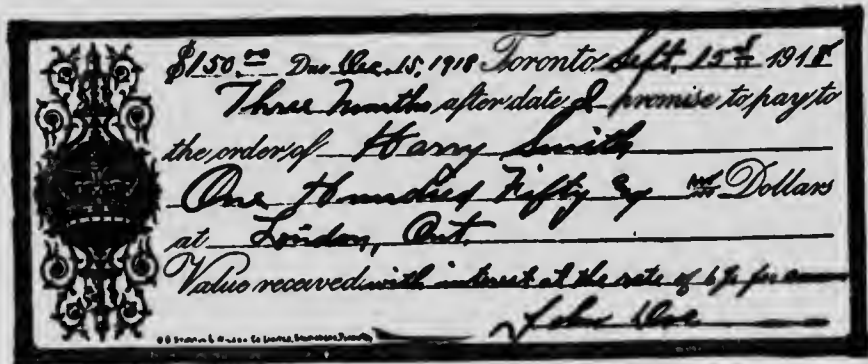 $150.00 Due Dec. 15, 1918 Toronto, Sept. 15th 1918
Three Months after date I promise to pay to
the order of Harry Smith
One Hundred Fifty xx/100 Dollars
at London, Ont.
Value received with interest at the rate of 6% per a
John Doe